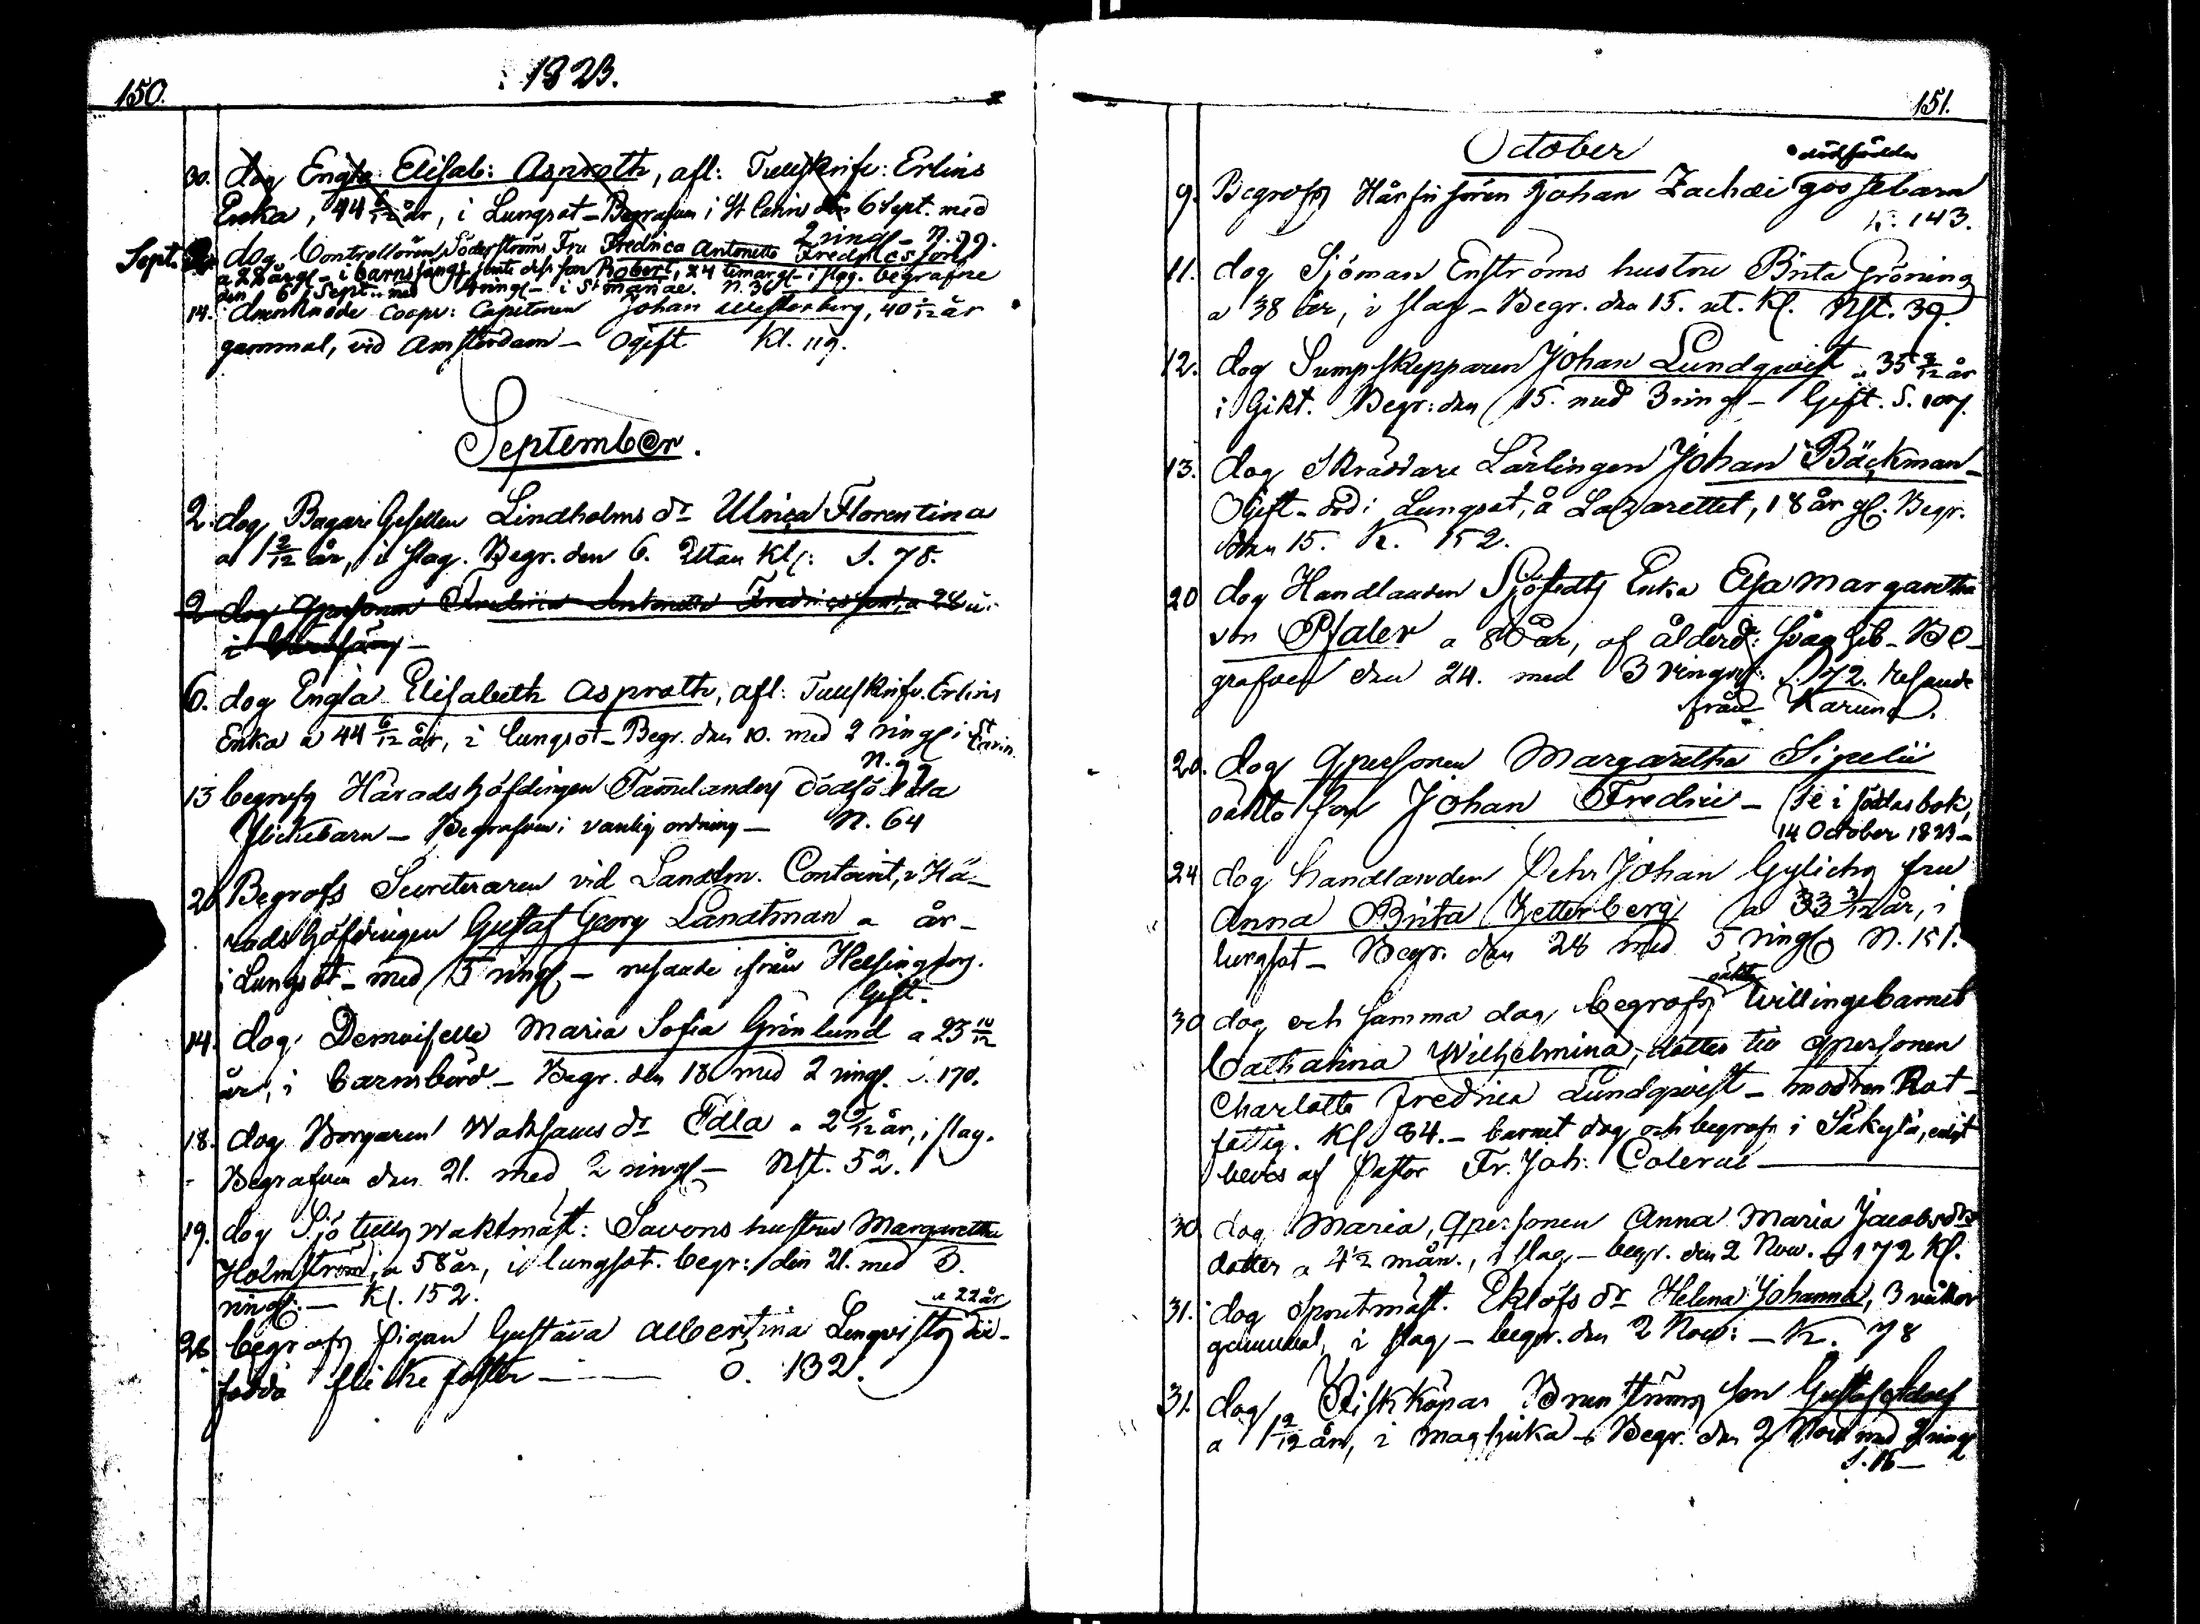 150.
1823.
30. dog Engla Elisab: Asproth, afl: Tullskrifv: Erlins
Enka, 44 6/12 år, i Lungsot - Begrafven i St Carin den 6 Sept. med
2 ringl - N. 99.
Sept. 2. dog Controlleuren Söderströms Fru Fredrica Antonetta Fredricsson
a 28 år gl - i barnsäng, samt dess son Robert, 24 timar gl - i slag. begrafne
den 6 Sept: med ringl - i St Mariae. N. 36
14. drunknade Coopv: Capitenen Johan Westerberg, 40 1/12 år
gammal, vid Amsterdam - Ogift Kl. 119.
September.
2. dog Bagare Gesellen Lindholms dr Ulrica Florentina
a 1 2/12 år, i slag. Begr. den 6. Utan Kl: S. 78.
2 dog Qpersonen Fredrica Antonetta Fredricsson, a 28 å.
i barnsäng -
6. dog Engla Elisabeth Asproth, afl. Tullskrifv. Erlins
Enka a 44 6/12 år, i lungsot - Begr. den 10. med 2 ringl i St Carin
N. 99
13 begrofs Häradshöfdingen Tamelanders dödfödda
flickebarn - Begrafven i vanlig ordning - N. 64
28 Begrofs Secreteraren vid Landtm. Contoiret, v Hä-
radshöfdingen Gustaf Georg Landtman a år -
i Lungsot - med 5 ringl - resande ifrån Helsingfors.
Gift.
14. dog Demoiselle Maria Sofia Grönlund a 23 10/12
år, i barnsbörd - Begr. den 18 med 2 ringl. S. 170.
18. dog Borgaren Wathsans dr Edla a 2 9/12 år, i slag.
- Begrafven den 21. med 2 ringl - Nst. 52.
19. dog Sjö tulls waktmäst: Savons hustru Margaretha
Holmström, a 58 år, i lungsot. begr: den 21. med 3.
ringl: - Kl. 152.
a 22 år
28 begrofs Pigan Gustava Albertina Lenqvists död-
födda flicke foster - Ö. 132.
151.
October
dödfödda
9. Begrofs Hårfrisören Johan Zachæi gossebarn
K. 143.
11. dog Sjöman Enströms hustru Brita Gröning
a 38 år, i slag - Begr. den 15. ut. Kl. Nst. 39.
12. dog Sumpskepparen Johan Lundqvist a 35 9/12 år
i Gikt. Begr: den 15. med 3 ringl - Gift. S. 109.
13. dog Skräddare Lärlingen Johan Bäckman -
Ogift - död i Lungsot, å Lazarettet, 18 år gl. Begr.
den 15. K. 152.
20 dog Handlanden Sjöstedts Enka Elsa Margaretha
von Pfaler a 80 år, af ålderd: svaghet - Be-
grafven den 24. med 3 ringn: S. 172. resande
från Karuna.
20. dog Qpersonen Margaretha Sipelii
oäkta son Johan Fredric - (se i födda bok,
14 October 1823 -
24 dog handlanden Pehr Johan Gylichs fru
Anna Brita Zetterberg a 33 3/12 år, i
lungsot - Begr. den 28 med 5 ringl N. 151.
oäkta
30 dog och samma dag begrofs twillingebarnet
Catharina Wilhelmina, dotter till qpersonen
Charlotta Fredrica Lundqvist - modren Rot-
fattig. Kl 84. - barnet dog och begrofs i Säkylä, enligt
bevis af Pastor Fr. Joh: Colerus
30 dog Maria, qpersonen Anna Maria Jacobsdrs
dotter a 4 1/2 mån., i slag - begr. den 2 Nov. - 172 Kl.
31. dog Sprutmäst. Eklöfs dr Helena Johanna, 3 veckor
gammal, i slag - begr. den 2 Nov: - K. 78
31. dog Fiskköpar Brunströms son Gustaf Adolf
a 1 9/12 år, i magsjuka - Begr. den 2 Nov med 2 ringl
S. 16 -